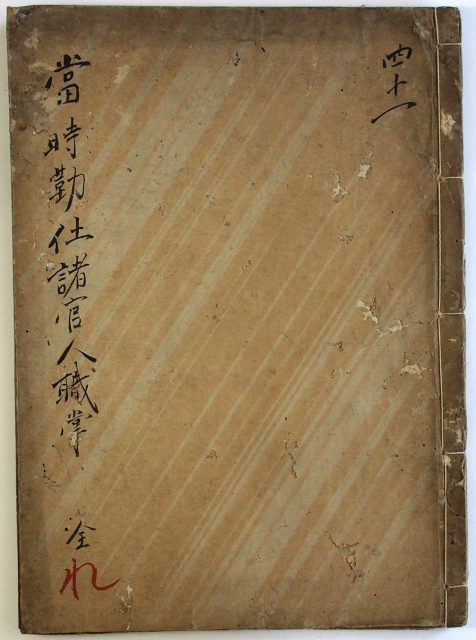 四十一
當時勤仕諸官人職掌 全
れ